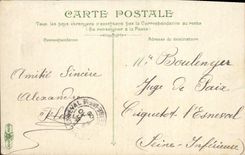 CARTE POSTALE
Tous les pays étrangers n'acceptent pas la Correspondance au recto
(Se renseigner à la Poste)
Correspondance
Adresse du destinataire
Amitié Sincère
Alexandre
Mr Boulenger
Juge de Paix
Criquetot l'Esneval
Seine-Inférieure